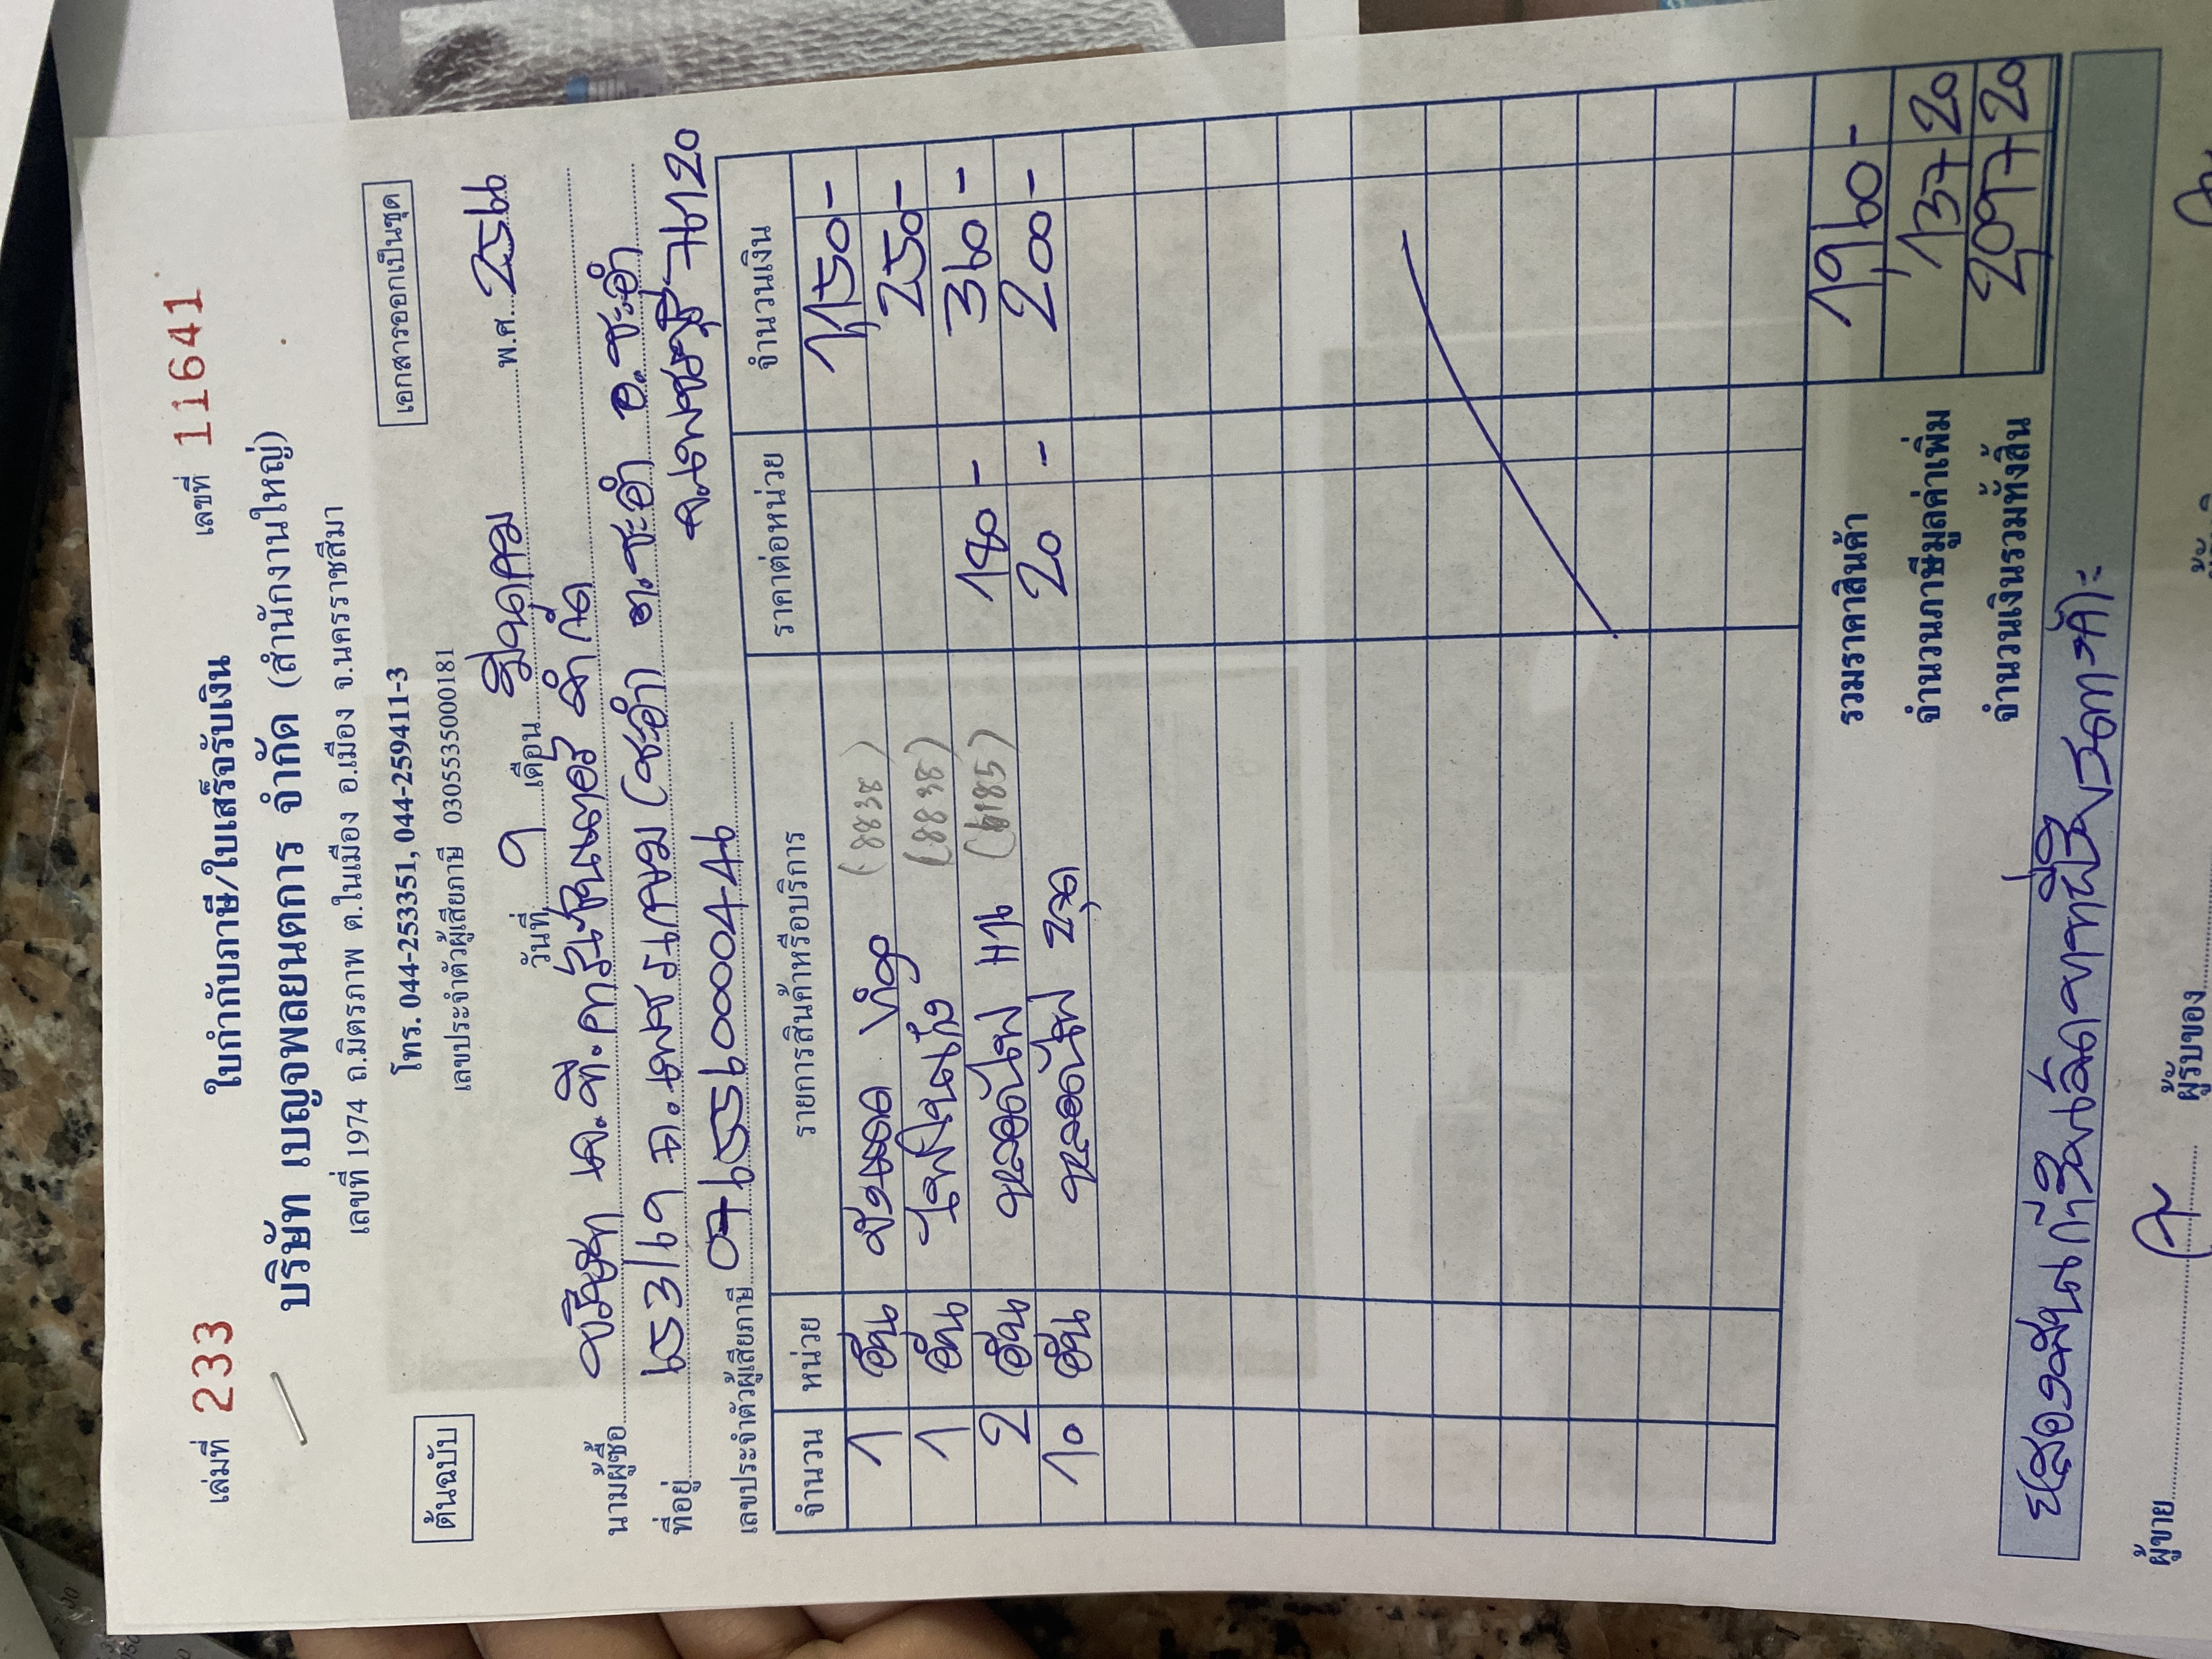 เล่มที่ 233 ใบกำกับภาษี/ใบเสร็จรับเงิน เลขที่ 111641
บริษัท เบญจพลยนตการ จำกัด (สำนักงานใหญ่)
เลขที่ 1974 ถ.มิตรภาพ ต.ในเมือง อ.เมือง จ.นครราชสีมา
ต้นฉบับ โทร. 044-253351, 044-259411-3 เอกสารออกเป็นชุด
เลขประจำตัวผู้เสียภาษี 0305535000181
วันที่ 9 เดือน มีนาคม พ.ศ. 2566
นามผู้ซื้อ บริษัท เค.พี. จำกัด
ที่อยู่ 653/69 ถ.เพชรเกษม (ชะอำ) ต.ชะอำ อ.ชะอำ
จ.เพชรบุรี 76120
เลขประจำตัวผู้เสียภาษี 0765560000446
จำนวน หน่วย รายการสินค้าหรือบริการ ราคาต่อหน่วย จำนวนเงิน
1 อัน Vigo (8838) 1,150 -
1 อัน (8838) 250 -
2 อัน หลอดไฟ H4 180 - 360 -
10 อัน หลอดไฟ 2จุด 20 - 200 -
รวมราคาสินค้า 1,960 -
จำนวนภาษีมูลค่าเพิ่ม 137 20
จำนวนเงินรวมทั้งสิ้น 2,097 20
สองพันเก้าสิบเจ็ดบาทยี่สิบสตางค์
ผู้ขาย ผู้รับของ